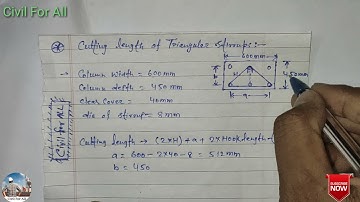 Civil For All
Cutting length of Triangular Stirrups:-
600mm
→ Column width = 600mm
Column depth = 450mm
Clear cover = 40mm
dia of stirrup = 8mm
450mm
H
b
a
Civil for All
Cutting length → (2×H)+a+2×Hook length-
a = 600-2×40-8 = 512mm
b = 450
Civil For All
SUBSCRIBE
NOW